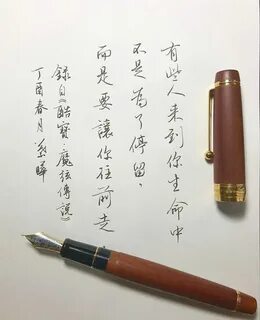 有些人來到你生命中
不是為了停留，
而是要讓你往前走
錄自《酷寶：魔弦傳說》
丁酉春月 系暉